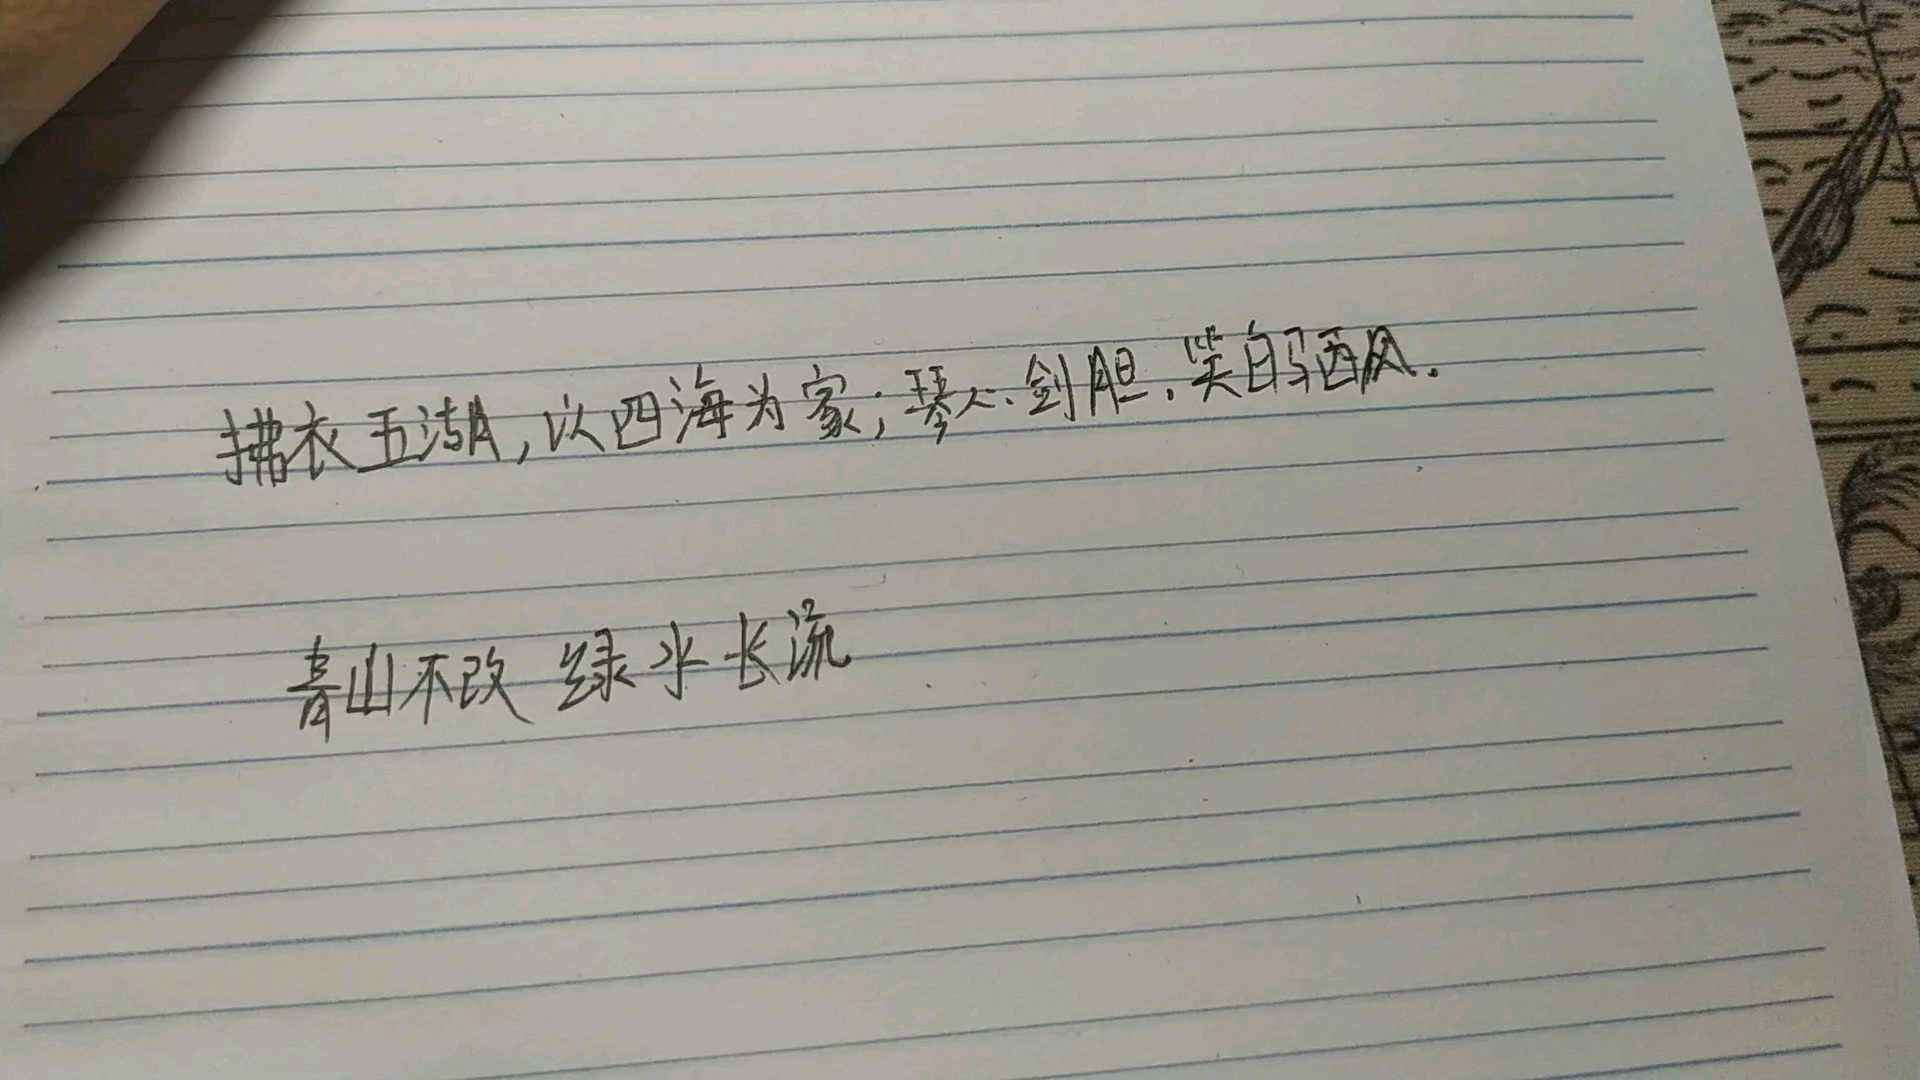 拂衣五湖，以四海为家；琴心剑胆，笑白马西风.
青山不改 绿水长流